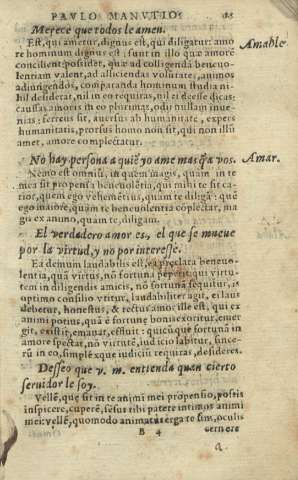 PAVLO MANVTIO.
Merece que todos le amen.
Amable
Est, qui ametur, dignus est, qui diligatur: amo
re hominum dignus est: sunt in illo quæ amorē
concilient: possidet, quæ ad colligendā beneuo-
lentiam valent, ad alliciendas volūtates, animos
adiungendos, comparanda hominum studia ni-
hil desiderat, nil in eo requiras, nil ei deesse dicas:
caussas amoris in eo plurimas, odij nullam inue-
nias: ferreus sit, auersus ab humanitate, expers
humanitatis, prorsus homo non sit, qui non illū
amet, amore complectatur.
No hay persona a quiē yo ame mas q̄ a vos.
Amar.
Nemo est omniū, in quem magis, quam in te
mea sit propensa beneuolētia, qui mihi te sit ca-
rior, quem ego vehemētius, quam te diligā: quē
ego maiore, quàm te beneuolentia cōplectar, ma
gis ex animo, quam te, diligam.
El verdadero amor es, el que se mueue
por la virtud, y no por interesse.
Ea demum laudabilis est, ea præclara beneuo-
lentia, quā virtus, nō fortuna peperit: qui virtu-
tem in diligendis amicis, nō fortunā sequitur, is
optimo consilio vtitur, laudabiliter agit, ei laus
debetur, honestus, & rectus amor ille est, qui ex
animi potius, quā ē fortunę bonis exoritur, emer
git, existit, emanat, effluit: quicūque fortunā in
amore spectat, nō virtutē, iudicio labitur, since-
rū in eo, simplēxque iudiciū requiras, desideres.
Desseo que v. m. entienda quan cierto
seruidor le soy.
Vellē, quę sit in te animi mei propensio, possis
inspicere, cuperē, sēsus tibi patere intimos animi
mei: vellē, quomodo animatus erga te sim, oculis
B 4 cernere